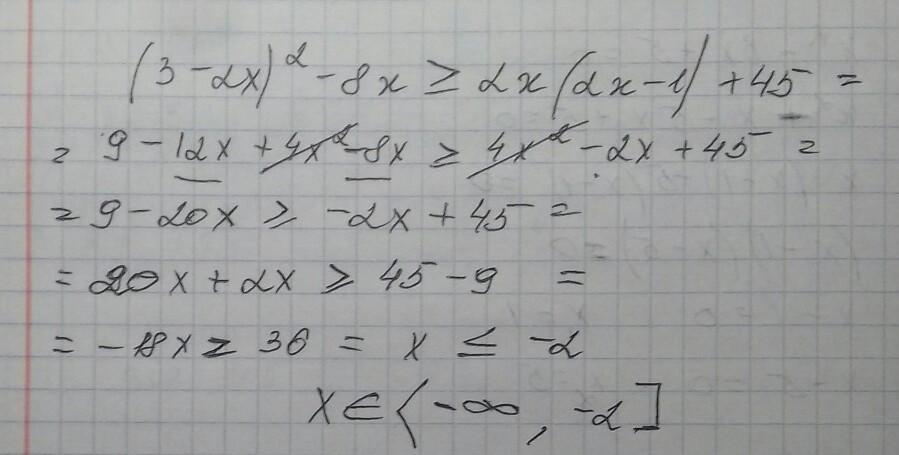 (3-2x)² - 8x ≥ 2x(2x-1) + 45 =
= 9 - 12x + 4x² - 8x ≥ 4x² - 2x + 45 =
= 9 - 20x ≥ -2x + 45 =
= 20x + 2x ≥ 45 - 9 =
= -18x ≥ 36 = x ≤ -2
x ∈ (-∞, -2]